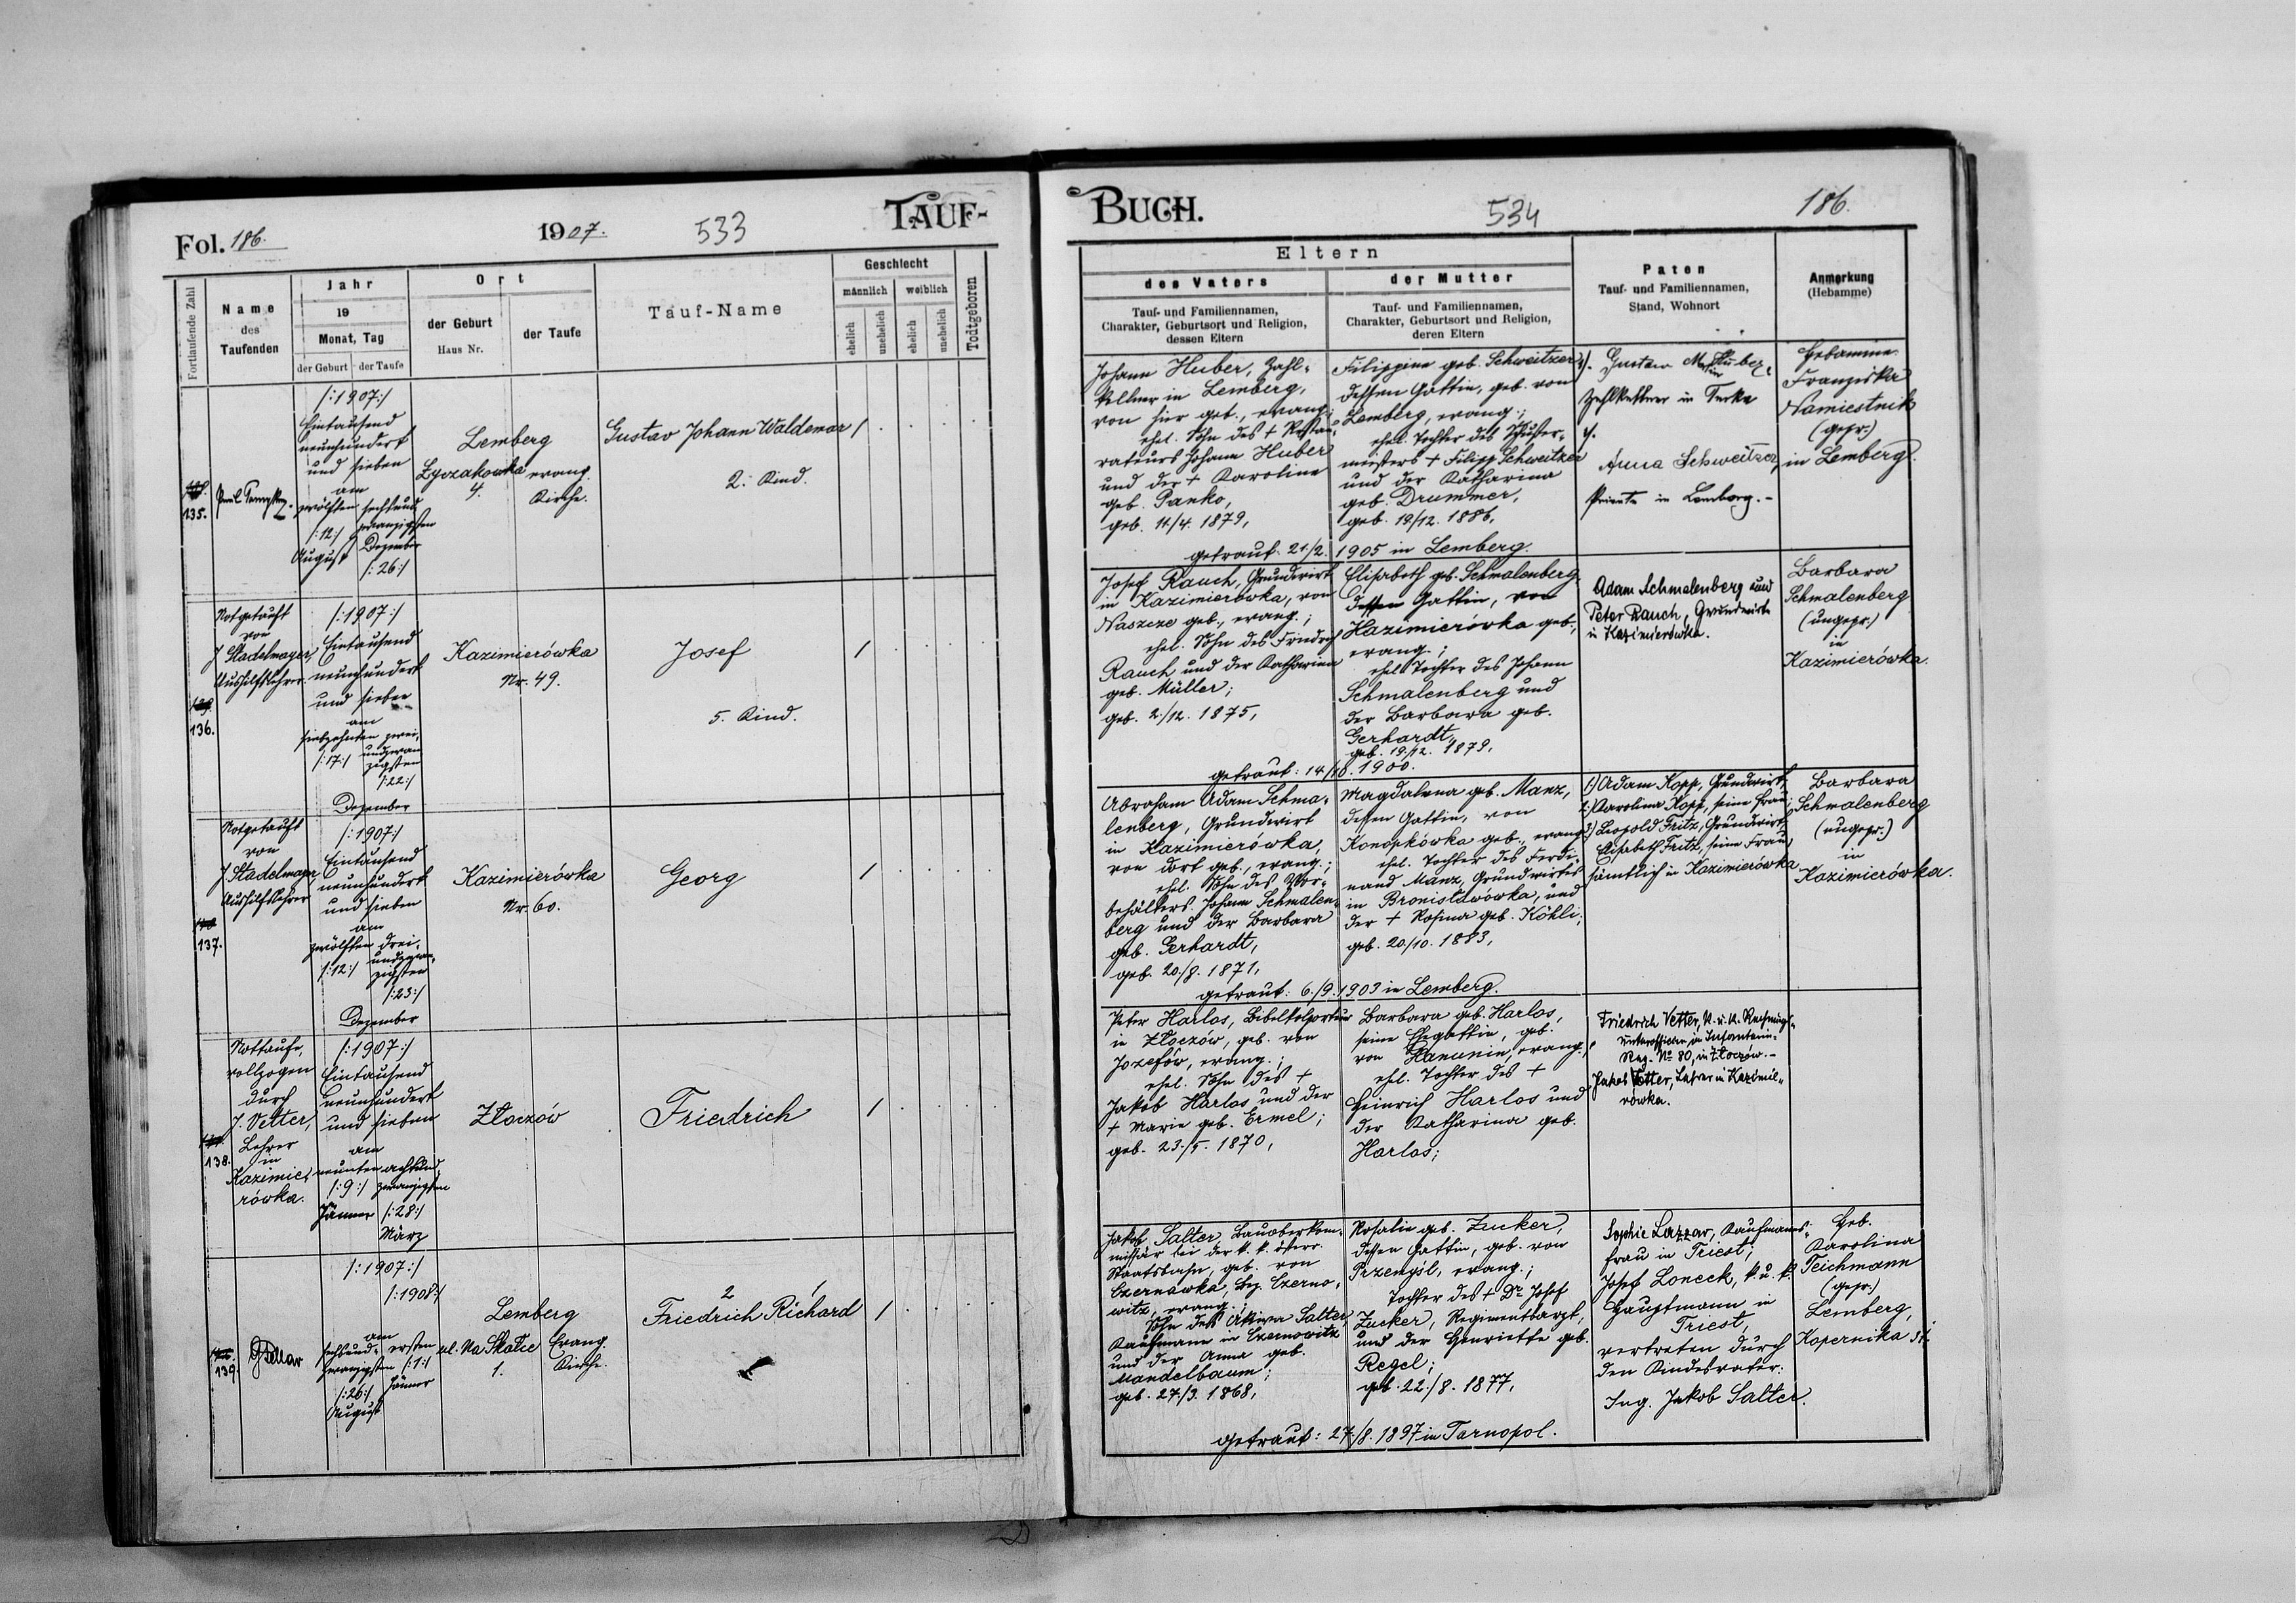 Fol. 186.
1907.
533
TAUF-
Fortlaufende Zahl
Name
des
Taufenden
Jahr
19
Monat, Tag
der Geburt
der Taufe
Ort
der Geburt
Haus Nr.
der Taufe
Tauf-Name
Geschlecht
männlich
weiblich
ehelich
unehelich
ehelich
unehelich
Todtgeboren
135.
/:1907:/
Eintausend
neunhundert
und sieben
am
zwölften sechsund-
/:12:/ zwanzigsten
August Dezember
/:26:/
Lemberg
Łyczakowka
4.
evang.
Kirche.
Gustav Johann Waldemar
2. Kind.
136.
Notgetauft
von
J. Stadelmayer,
Aushilfslehrer
/:1907:/
Eintausend
neunhundert
und sieben
am
siebzehnten zwei-
/:17:/ undzwan-
zigsten
/:22:/
Dezember
Kazimierówka
Nr. 49.
Josef
5. Kind.
137.
Notgetauft
von
J. Stadelmayer,
Aushilfslehrer
/:1907:/
Eintausend
neunhundert
und sieben
am
zwölften drei-
/:12:/ undzwan-
zigsten
/:23:/
Dezember
Kazimierówka
Nr. 60.
Georg
138.
Nottaufe,
vollzogen
durch
J. Vetter,
Lehrer
in
Kazimie-
rówka.
/:1907:/
Eintausend
neunhundert
und sieben
am
neunten achtund-
/:9:/ zwanzigsten
Jänner /:28:/
März
Złoczów
Friedrich
139.
/:1907:/
/:1908:/
am
sechsund- ersten
zwanzigsten /:1:/
/:26:/ Jänner
August
Lemberg
ul. Na Skałce
1.
Evang.
Kirche.
2
Friedrich Richard
BUCH.
534
186.
Eltern
des Vaters
Tauf- und Familiennamen,
Charakter, Geburtsort und Religion,
dessen Eltern
der Mutter
Tauf- und Familiennamen,
Charakter, Geburtsort und Religion,
deren Eltern
Paten
Tauf- und Familiennamen,
Stand, Wohnort
Anmerkung
(Hebamme)
Johann Huber, Zahl-
kellner in Lemberg,
von hier geb., evang.;
ehel. Sohn des + Restau-
rateurs Johann Huber
und der + Karoline
geb. Panko,
geb. 11/4. 1879,
Filippine geb. Schweitzer,
dessen Gattin, geb. von
Lemberg, evang.;
ehel. Tochter des Schuster-
meisters + Filipp Schweitzer
und der Katharina
geb. Drummer,
geb. 19/12. 1886.
getraut 21/2. 1905 in Lemberg.
Gustav Huber,
Zahlkellner in Turka
Anna Schweitzer,
Private in Lemberg.-
Hebamme
Franziska
Namiestnik
(gepr.)
in Lemberg.
Josef Rauch, Grundwirt
in Kazimierówka, von
Naszcze geb., evang.;
ehel. Sohn des Friedrich
Rauch und der Katharina
geb. Müller;
geb. 2/12. 1875,
Elisabeth geb. Schmalenberg,
dessen Gattin, von
Kazimierówka geb.,
evang.;
ehel. Tochter des Johann
Schmalenberg und
der Barbara geb.
Gerhardt,
geb. 19/12. 1879.
getraut: 14/10. 1900.
Adam Schmalenberg und
Peter Rauch, Grundwirte
in Kazimierówka.
Barbara
Schmalenberg
(ungepr.)
in
Kazimierówka.
Abraham Adam Schma-
lenberg, Grundwirt
in Kazimierówka,
von dort geb., evang.;
ehel. Sohn des Vor-
behälters Johann Schmalen-
berg und der Barbara
geb. Gerhardt,
geb. 20/8. 1871,
Magdalena geb. Manz,
dessen Gattin, von
Konopkówka geb., evang.;
ehel. Tochter des Ferdi-
nand Manz, Grundwirtes
in Bronisławówka, und
der + Rosina geb. Köhli;
geb. 20/10. 1883,
getraut: 6./9. 1903 in Lemberg.
1) Adam Kopp, Grundwirt,
2) Karolina Kopp, seine Frau,
3) Leopold Fritz, Grundwirt,
Elisabeth Fritz, seine Frau,
sämtlich in Kazimierówka
Barbara
Schmalenberg
(ungepr.)
in
Kazimierówka.
Peter Harlos, Bibelkolporteur
in Złoczów, geb. von
Jozefów, evang.;
ehel. Sohn des +
Jakob Harlos und der
+ Marie geb. Ermel;
geb. 23./5. 1870,
Barbara geb. Harlos,
seine Ehegattin, geb.
von Hanunin, evang.,
ehel. Tochter des +
Heinrich Harlos und
der Katharina geb.
Harlos;
Friedrich Vetter, K. u. K. Rechnungs-
unteroffizier in Infanterie-
Reg. No 80, in Złoczów.-
Jakob Vetter, Lehrer in Kazimie-
rówka.
Jakob Salter, Bauoberkom-
missär bei der k. k. österr.
Staatsbahn, geb. von
Czernawka, Bez. Czerno-
witz, evang.;
Sohn des Akiwa Salter,
Kaufmann in Czernowitz
und der Anna geb.
Mandelbaum;
geb. 27./3. 1868,
Rosalie geb. Zucker,
dessen Gattin, geb. von
Przemyśl, evang.;
Tochter des + Dr Josef
Zucker, Regimentsarzt,
und der Henriette geb.
Regel;
geb. 22./8. 1877,
getraut: 27./8. 1897 in Tarnopol.
Sophie Lazzar, Kaufmanns-
frau in Triest;
Josef Loneck, k. u. k.
Hauptmann in
Triest,
vertreten durch
den Kindesvater:
Ing. Jakob Salter.
Heb.
Karolina
Teichmann
(gepr.)
Lemberg,
Kopernika